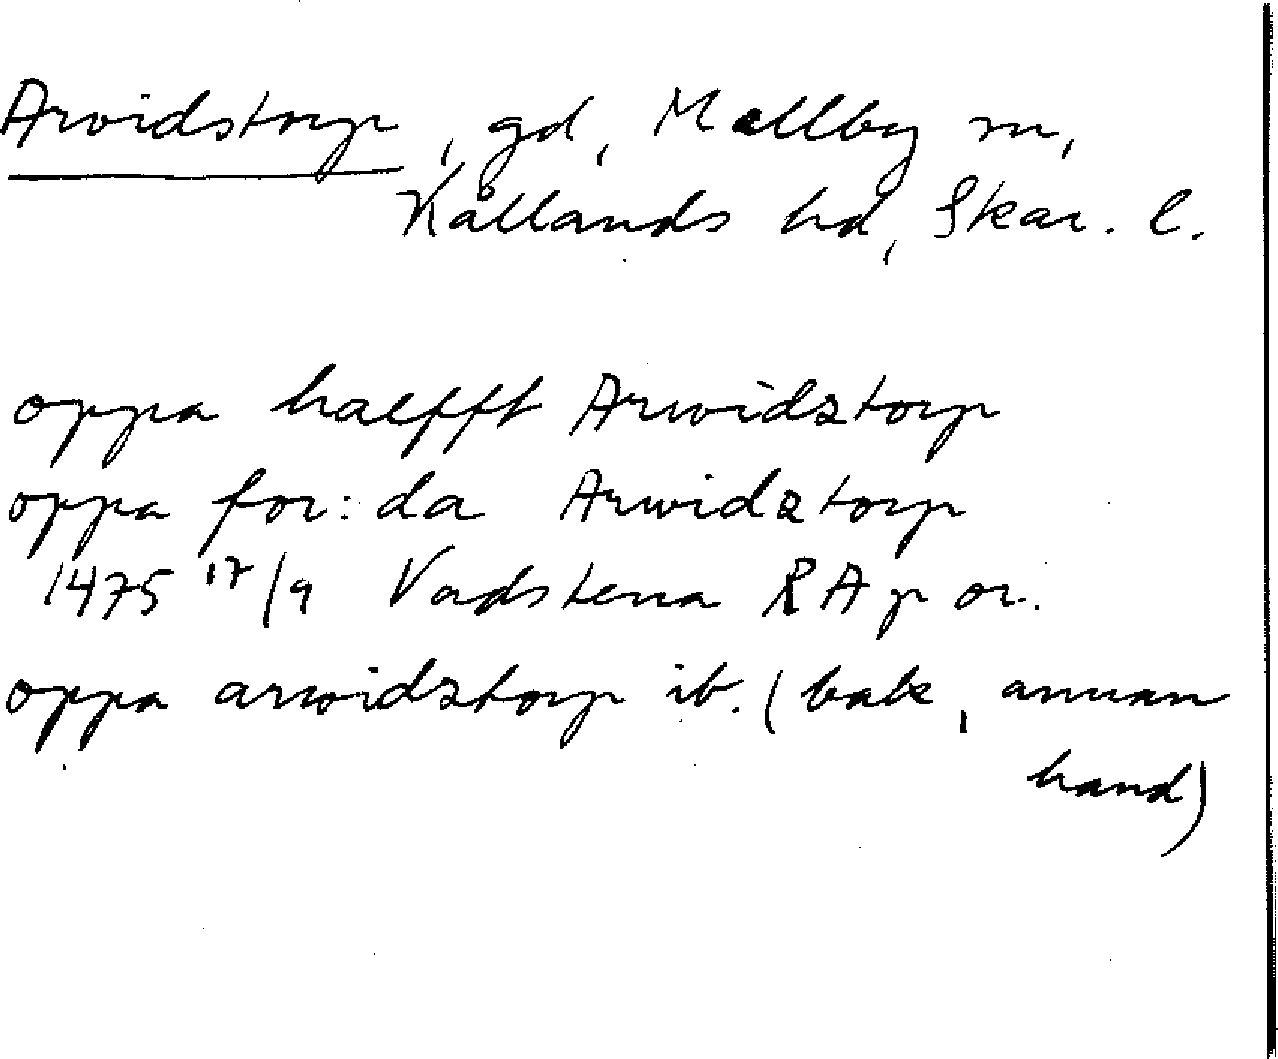 Arvidstorp, gd, Mellby sn,
Kållands hd, Skar. l.
oppa halfft Arwidztorp
oppa for:da Arwidztorp
1475 17/9 Vadstena RA p or.
oppa arwidztorp ib. (bak, annan
hand)